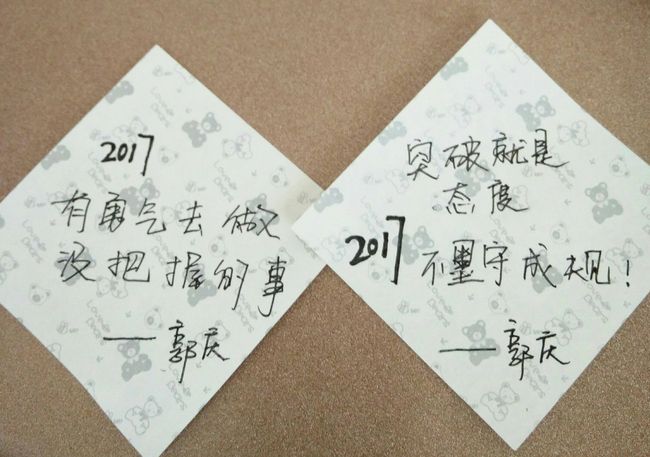 2017
有勇气去做
没把握的事
——郭庆
突破就是
态度
2017 不墨守成规！
——郭庆